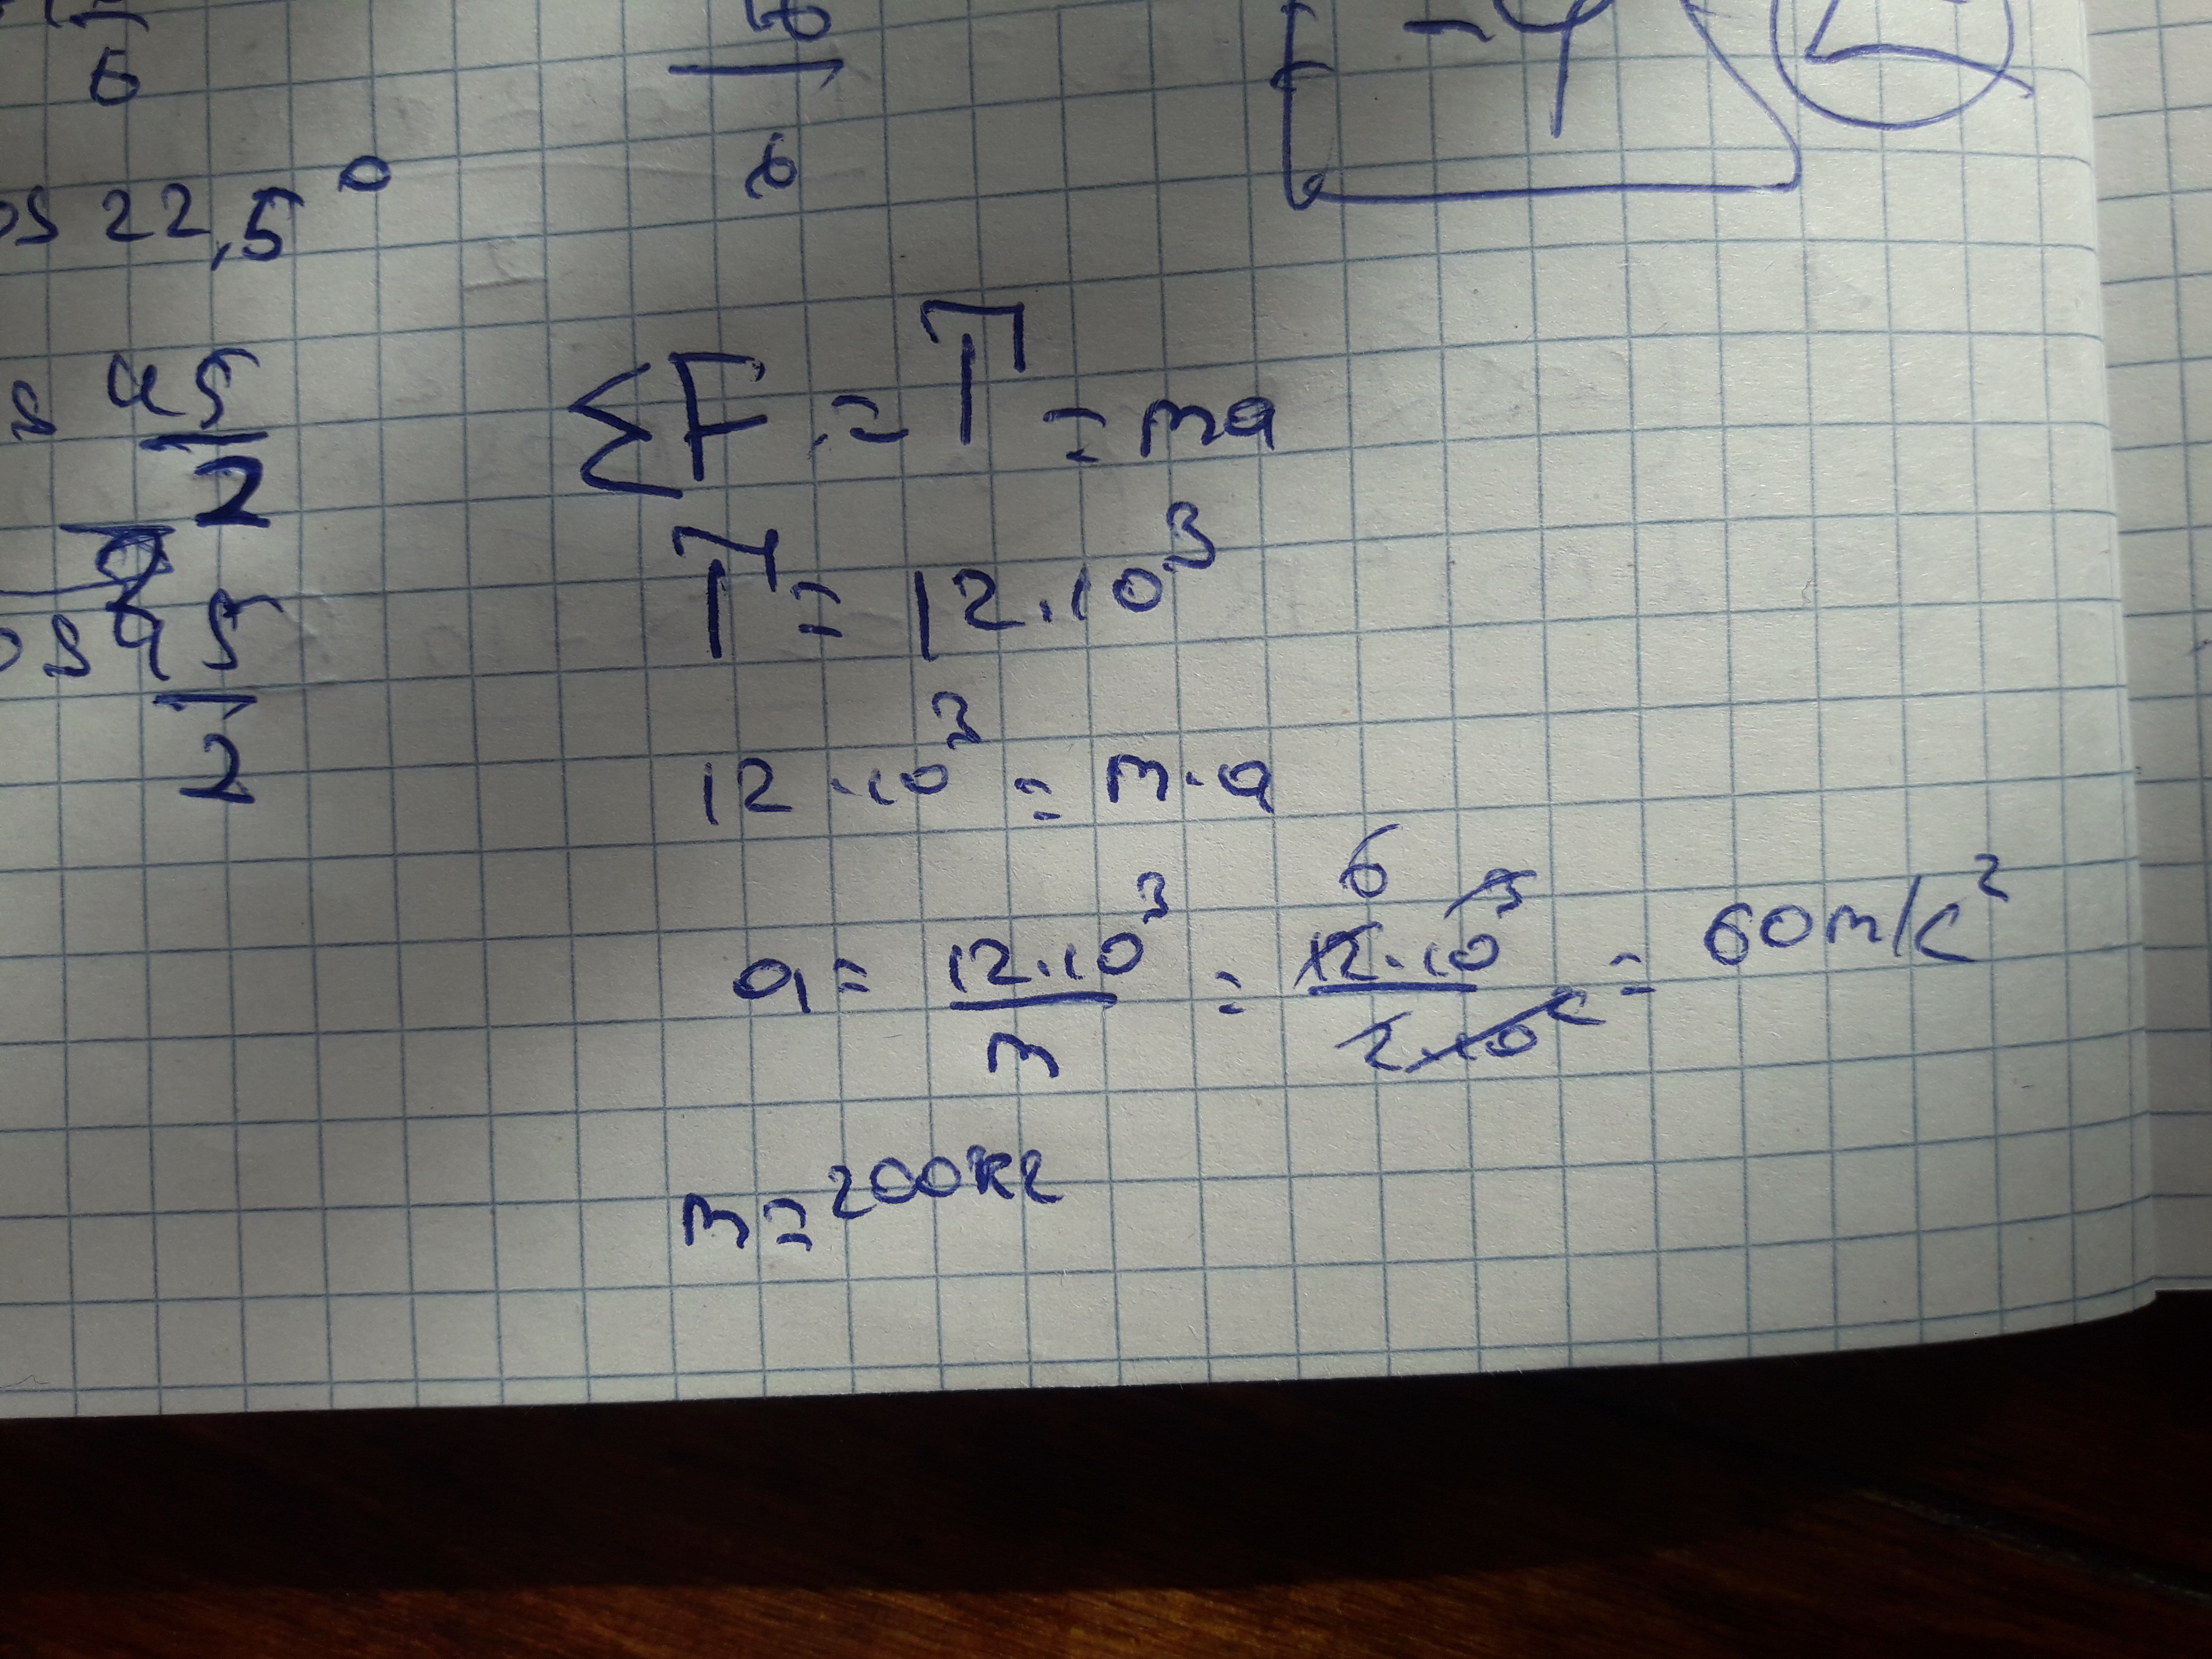 6
16
6
-4
os 22,5°
s 45/2
os 45/2
ΣF = T = ma
T = 12·10³
12·10³ = m·a
a = 12·10³/m = 12·10³/2·10² = 60 m/c²
6
m = 200кг